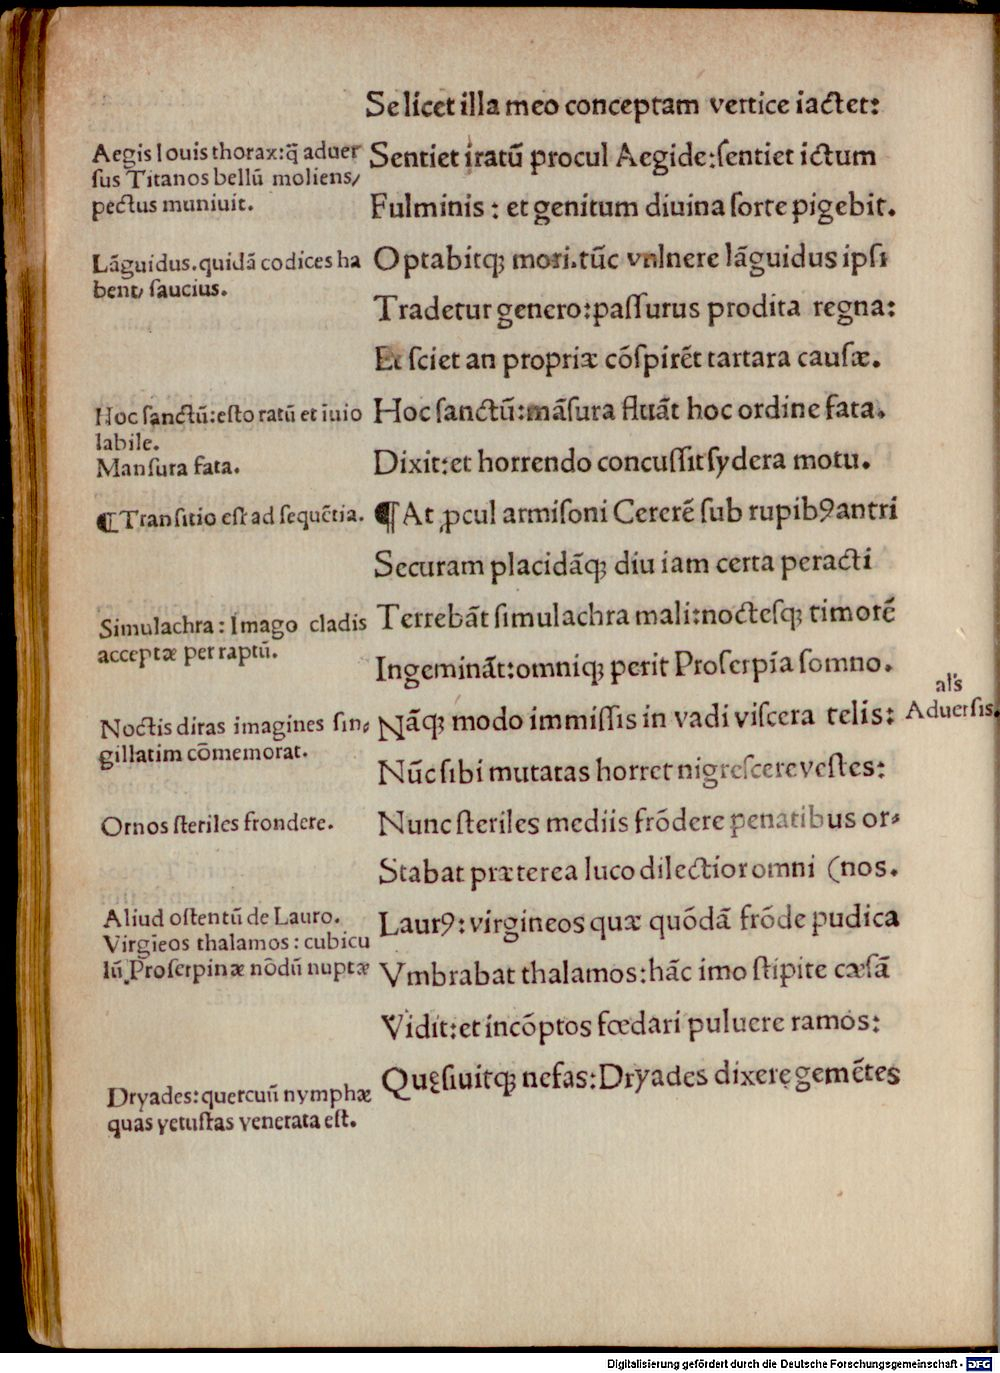 Se licet illa meo conceptam vertice iactet:
Aegis Iouis thorax:q̃ aduer
sus Titanos bellũ moliens/
pectus muniuit.
Sentiet iratũ procul Aegide:sentiet ictum
Fulminis : et genitum diuina sorte pigebit.
Lãguidus.quidã codices ha
bent/ saucius.
Optabitqꝫ mori.tũc vnlnere lãguidus ipsi
Tradetur genero:passurus prodita regna:
Et sciet an propriæ cõspirẽt tartara causæ.
Hoc sanctũ:esto ratũ et iuio
labile.
Mansura fata.
Hoc sanctũ:mãsura fluãt hoc ordine fata.
Dixit:et horrendo concussit sydera motu.
¶Transitio est ad sequẽtia.
¶At ꝓcul armisoni Cererẽ sub rupibꝰ antri
Securam placidãqꝫ diu iam certa peracti
Simulachra : Imago cladis
acceptæ per raptũ.
Terrebãt simulachra mali:noctesqꝫ timorẽ
Ingeminãt:omniqꝫ perit Proserpĩa somno.
Noctis diras imagines sin⸗
gillatim cõmemorat.
Nãqꝫ modo immissis in vadi viscera telis:
al's
Aduersis.
Nũc sibi mutatas horret nigrescere vestes:
Ornos steriles frondere.
Nunc steriles mediis frõdere penatibus or⸗
Stabat præterea luco dilectior omni (nos.
Aliud ostentũ de Lauro.
Virgieos thalamos : cubicu
lũ Proserpinæ nõdũ nuptæ
Laurꝰ: virgineos quæ quõdã frõde pudica
Vmbrabat thalamos:hãc imo stipite cæsã
Vidit:et incõptos fœdari puluere ramos:
Dryades:quercuũ nymphæ
quas vetustas venerata est.
Quęsiuitqꝫ nefas:Dryades dixere gemẽtes
Digitalisierung gefördert durch die Deutsche Forschungsgemeinschaft - DFG